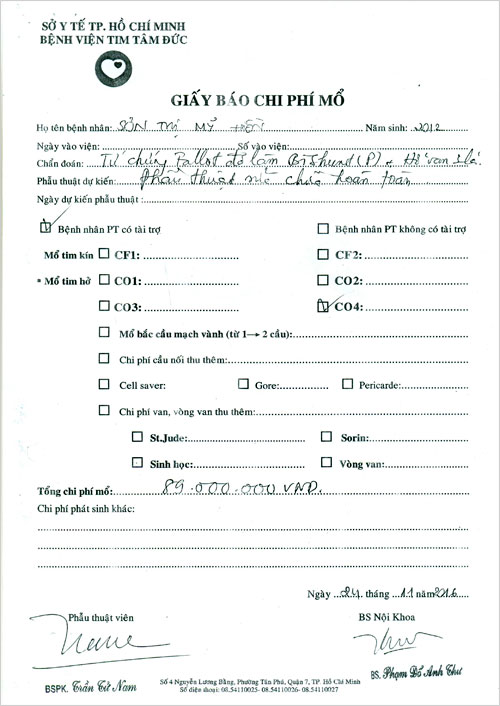 SỞ Y TẾ TP. HỒ CHÍ MINH
BỆNH VIỆN TIM TÂM ĐỨC
GIẤY BÁO CHI PHÍ MỔ
Họ tên bệnh nhân: SƠN THỊ MỸ HIỀN Năm sinh: 2012
Ngày vào viện: Số vào viện:
Chẩn đoán: Tứ chứng Fallot đã làm BTShunt (P) + Hở van 3 lá.
Phẫu thuật dự kiến: phẫu thuật sửa chữa hoàn toàn
Ngày dự kiến phẫu thuật :
Bệnh nhân PT có tài trợ Bệnh nhân PT không có tài trợ
Mổ tim kín CF1: CF2:
* Mổ tim hở CO1: CO2:
CO3: CO4:
Mổ bắc cầu mạch vành (từ 1→ 2 cầu):
Chi phí cầu nối thu thêm:
Cell saver: Gore: Pericarde:
Chi phí van, vòng van thu thêm:
St.Jude: Sorin:
Sinh học: Vòng van:
Tổng chi phí mổ: 89.000.000 VNĐ.
Chi phí phát sinh khác:
Ngày 24 tháng 11 năm 2016
Phẫu thuật viên BS Nội Khoa
BSPK. Trần Tử Nam BS. Phạm Đỗ Anh Thư
Số 4 Nguyễn Lương Bằng, Phường Tân Phú, Quận 7, TP. Hồ Chí Minh
Số điện thoại: 08.54110025- 08.54110026- 08.54110027